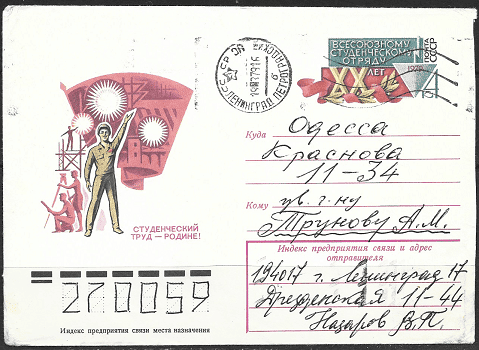 ВСЕСОЮЗНОМУ
СТУДЕНЧЕСКОМУ
ОТРЯДУ
XX ЛЕТ
ПОЧТА
СССР
СССР
ЛЕНИНГРАД
СТУДЕНЧЕСКИЙ
ТРУД — РОДИНЕ!
Куда Одесса
Краснова
11-34
Кому ув. г-ну
Трунову А.М.
Индекс предприятия связи и адрес
отправителя
194017 г. Ленинград 17
Дрезденская 11-44
Назаров В.П.
270059
Индекс предприятия связи места назначения